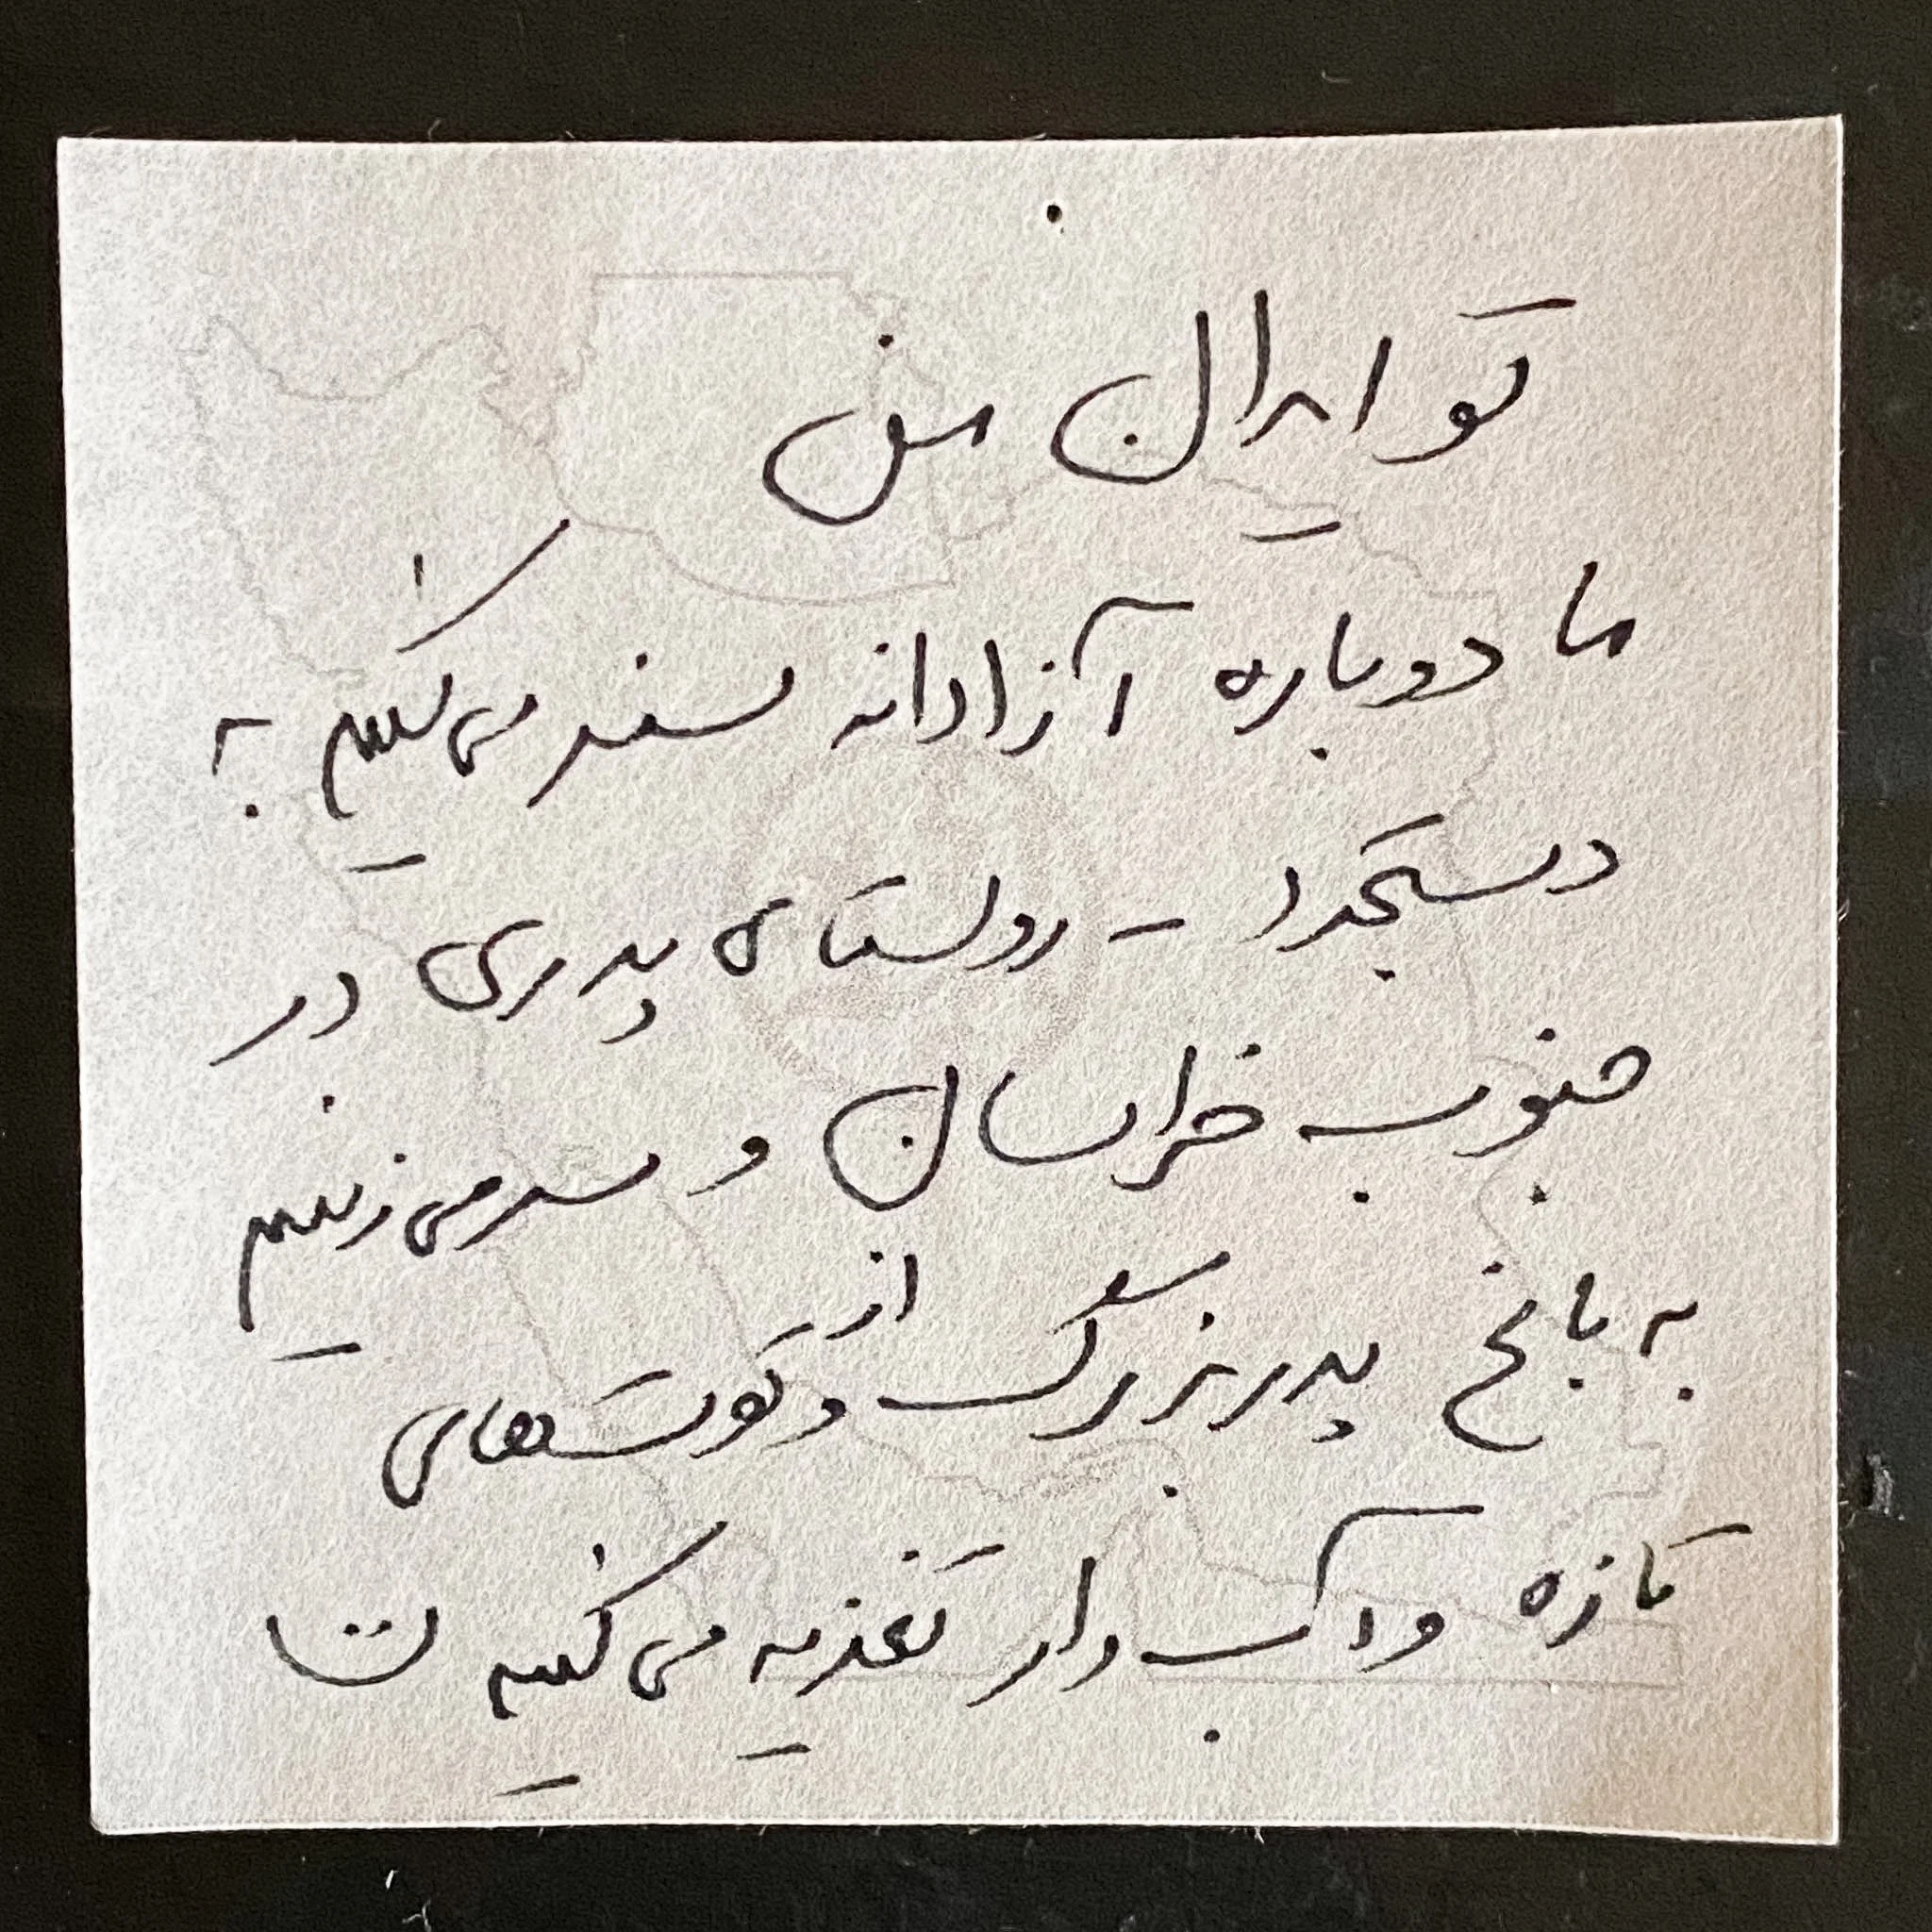 تو ایران من
ما دوباره آزادانه سفر می‌کنیم به
دستجرد - روستای پدری در
جنوب خراسان و سر می‌زنیم
به باغ پدربزرگ و از توت‌های
تازه و آب‌دار تغذیه می‌کنیم